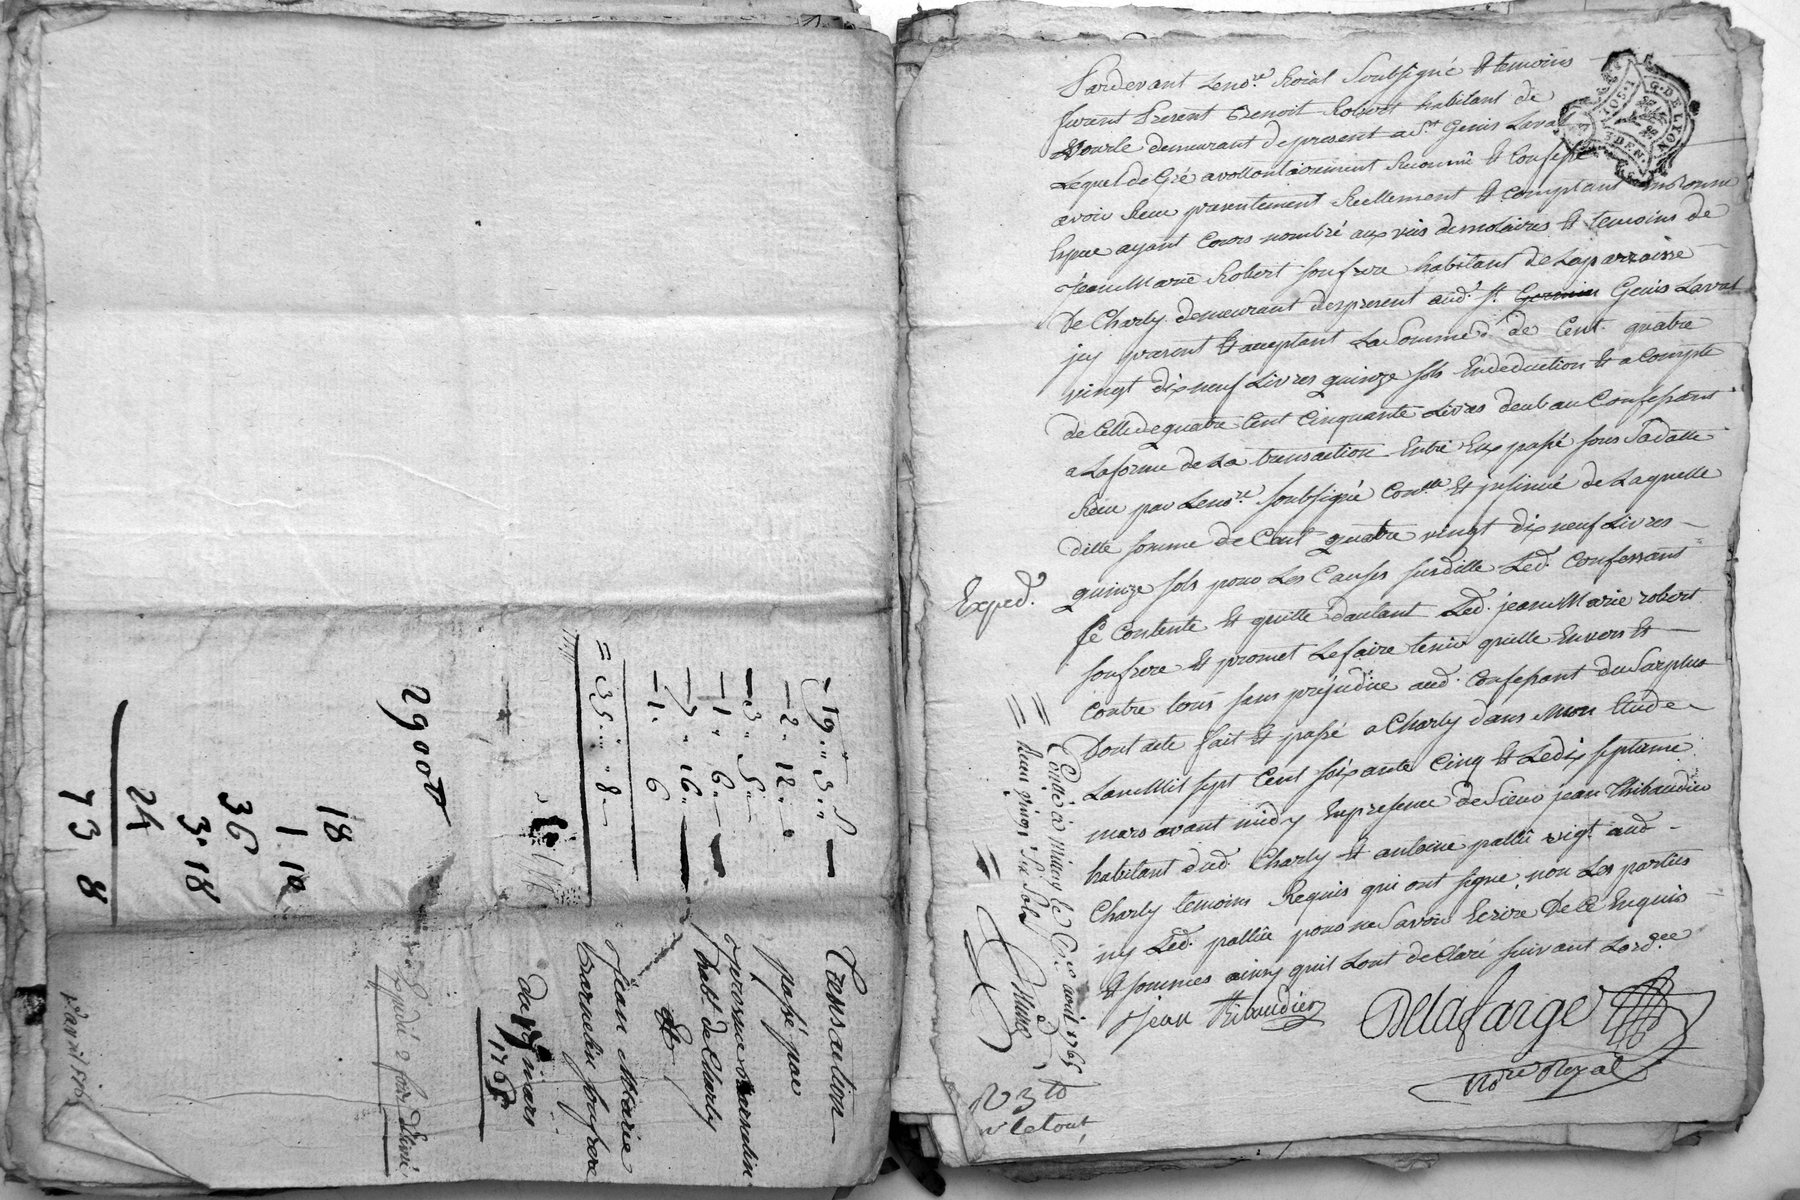 Transaction
passé par
habt. de Charly
Et
Jean Marie
son frere
du 19 mars
1765
Expedié 2 fois
19 " 3 "
2 " 12 "
3 " 5 "
1 " 6 "
7 " 16 "
1 " 6
= 35 " " 8
2900
18
1 10
36
3 18
24
73 8
G. DE LYON
1 SOL
DEN
Pardevant Le nore. Roial Soubsigné Et temoins
furent Present Benoit Robert habitant de
Vourle demeurant depresent a St Genis Laval
Lequel de Gré a vollontairement Reconnu Et Confessé
avoir Reçu presentement Reellement Et Comptant
Espece ayant Cours nombré aux vûs de notaires Et temoins de
jean Marie Robert son frere habitant de La parroisse
De Charly demeurant depresent aud. St. Genis Laval
icy present Et acceptant La Somme de Cent quatre
vingt dix neuf Livres quinze sols En deduction Et a Compte
de Celle de quatre Cent Cinquante Livres deub au Confessant
a La forme de La transaction Entre Eux passé sous Sa datte
Reçu par Le nore. soubsigné Conlle Et insinué de Laquelle
ditte somme de Cent quatre vingt dix neuf Livres
quinze sols pour Les Causes susditte Led. Confessant
Exped.
se Contente Et quitte d'autant Led. jean Marie robert
son frere Et promet Le faire tenir quitte Envers Et
Contre tous sans prejudice aud. Confessant du Surplus
Dont acte fait Et passé a Charly dans Mon Etude
Lan Mil sept Cent soixante Cinq Et Le dix septieme
mars avant midy En presence de Sieur jean Thibaudier
habitant dud. Charly Et antoine
Charly temoins Requis qui ont signe, non Les parties
ny Led. pour ne Savoir Ecrire De Ce Enquis
Et sommes ainsy quils Lont declaré suivant Lordce.
Jean Thibaudier
Delafarge
Nore Royal
= Contlé à Millery le août 1765
= Reçu vingt Six Sols